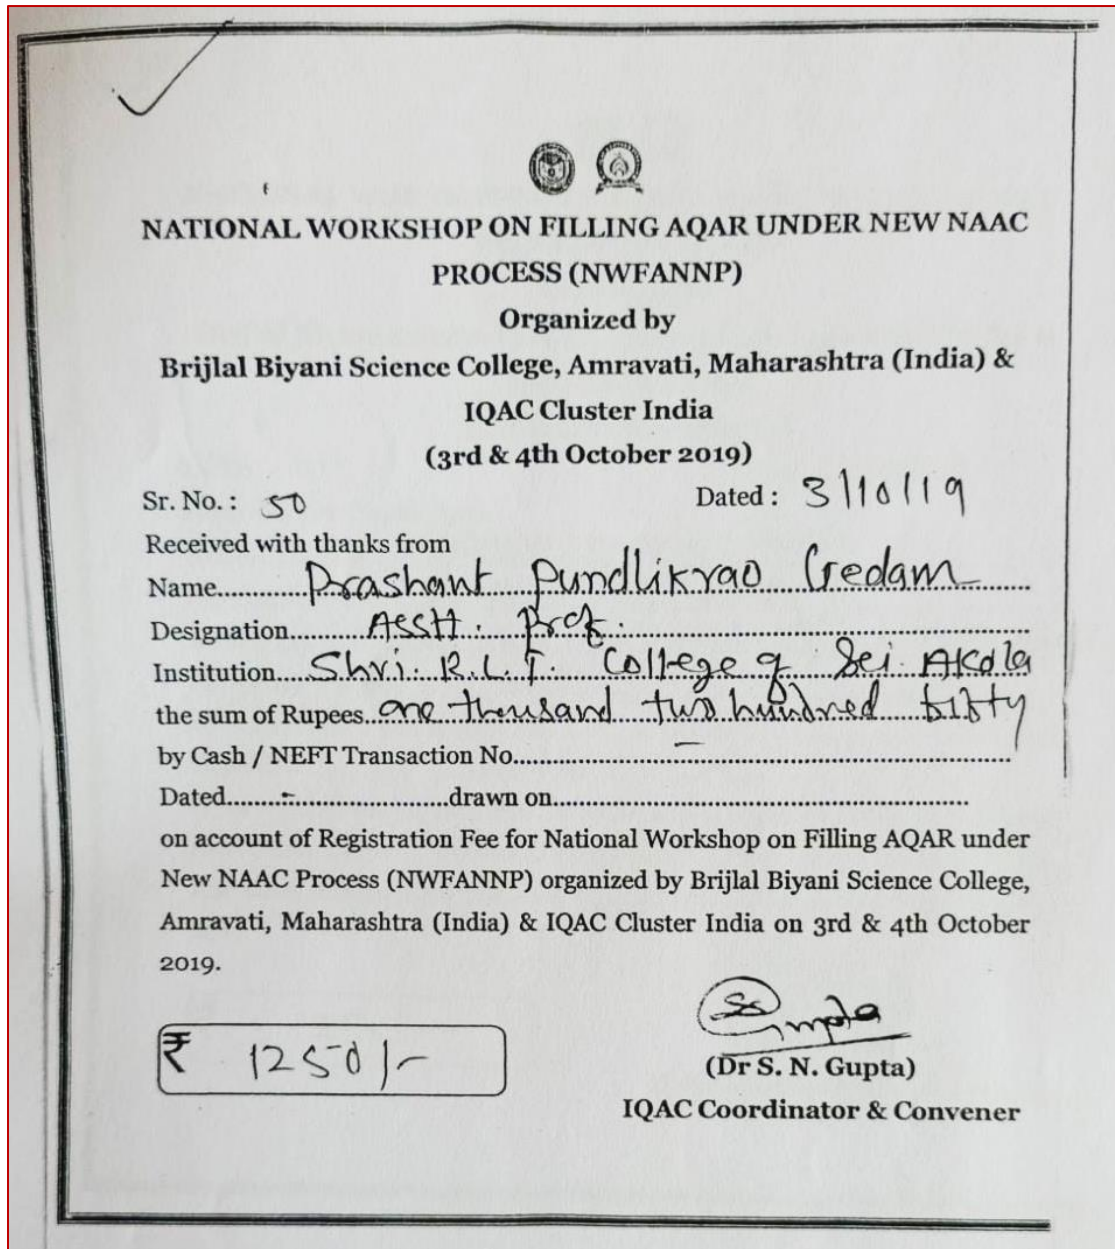 NATIONAL WORKSHOP ON FILLING AQAR UNDER NEW NAAC
PROCESS (NWFANNP)
Organized by
Brijlal Biyani Science College, Amravati, Maharashtra (India) &
IQAC Cluster India
(3rd & 4th October 2019)
Sr. No. : 50 Dated : 3/10/19
Received with thanks from
Name............Prashant Pundlikrao Gedam
Designation.........Asstt. Prof.
Institution....Shri. R.L.T. College of Sci. Akola
the sum of Rupees..one thousand two hundred fifty
by Cash / NEFT Transaction No.........–.........
Dated........-......................drawn on.........
on account of Registration Fee for National Workshop on Filling AQAR under
New NAAC Process (NWFANNP) organized by Brijlal Biyani Science College,
Amravati, Maharashtra (India) & IQAC Cluster India on 3rd & 4th October
2019.
₹ 1250/-
Gupta
(Dr S. N. Gupta)
IQAC Coordinator & Convener